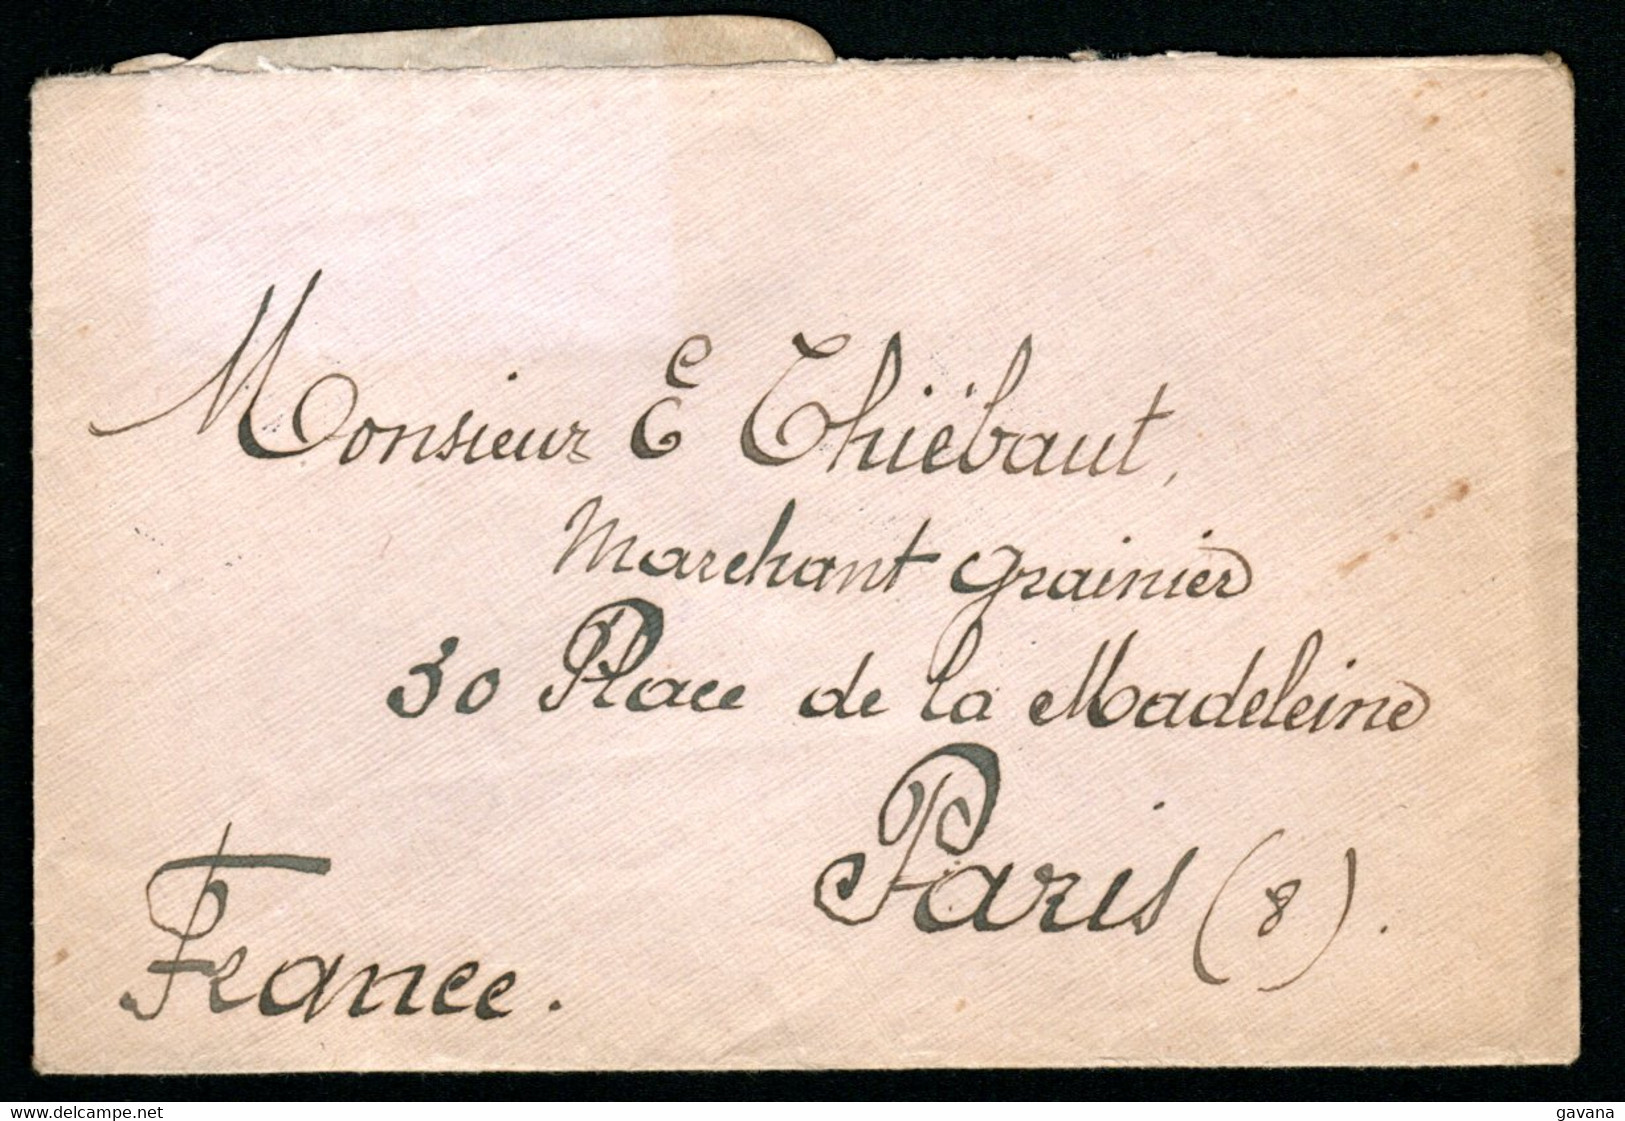 Monsieur E Thiëbaut,
Marchant grainier
30 Place de la Madeleine
Paris (8).
France.
delcampe.net
gavana